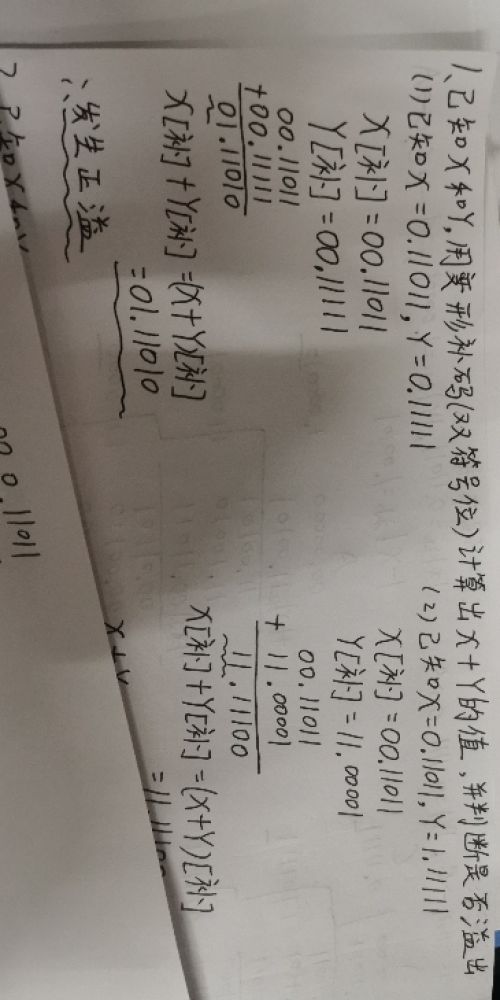 1、已知X和Y,用变形补码(双符号位)计算出X+Y的值,并判断是否溢出
(1)已知X=0.11011,Y=0.11111
X[补]=00.11011
Y[补]=00.11111
00.11011
+00.11111
01.11010
X[补]+Y[补]=(X+Y)[补]
=01.11010
∴发生正溢
(2)已知X=0.11011,Y=1.11111
X[补]=00.11011
Y[补]=11.00001
00.11011
+ 11.00001
11.11100
X[补]+Y[补]=(X+Y)[补]
=11.111
X+Y
2已知X
0.11011